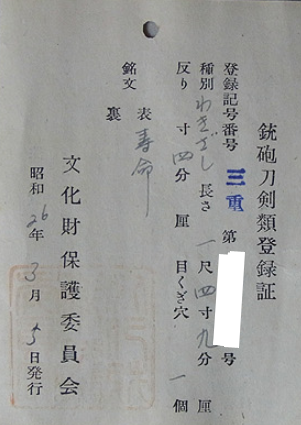 銃砲刀剣類登録証
登録記号番号 三重 第 号
種別 わきざし 長さ 一尺四寸九分 厘
反り 寸 四分 厘 目くぎ穴 一 個
銘文 表 寿命
裏
文化財保護委員会
昭和 26年 3月 5日発行